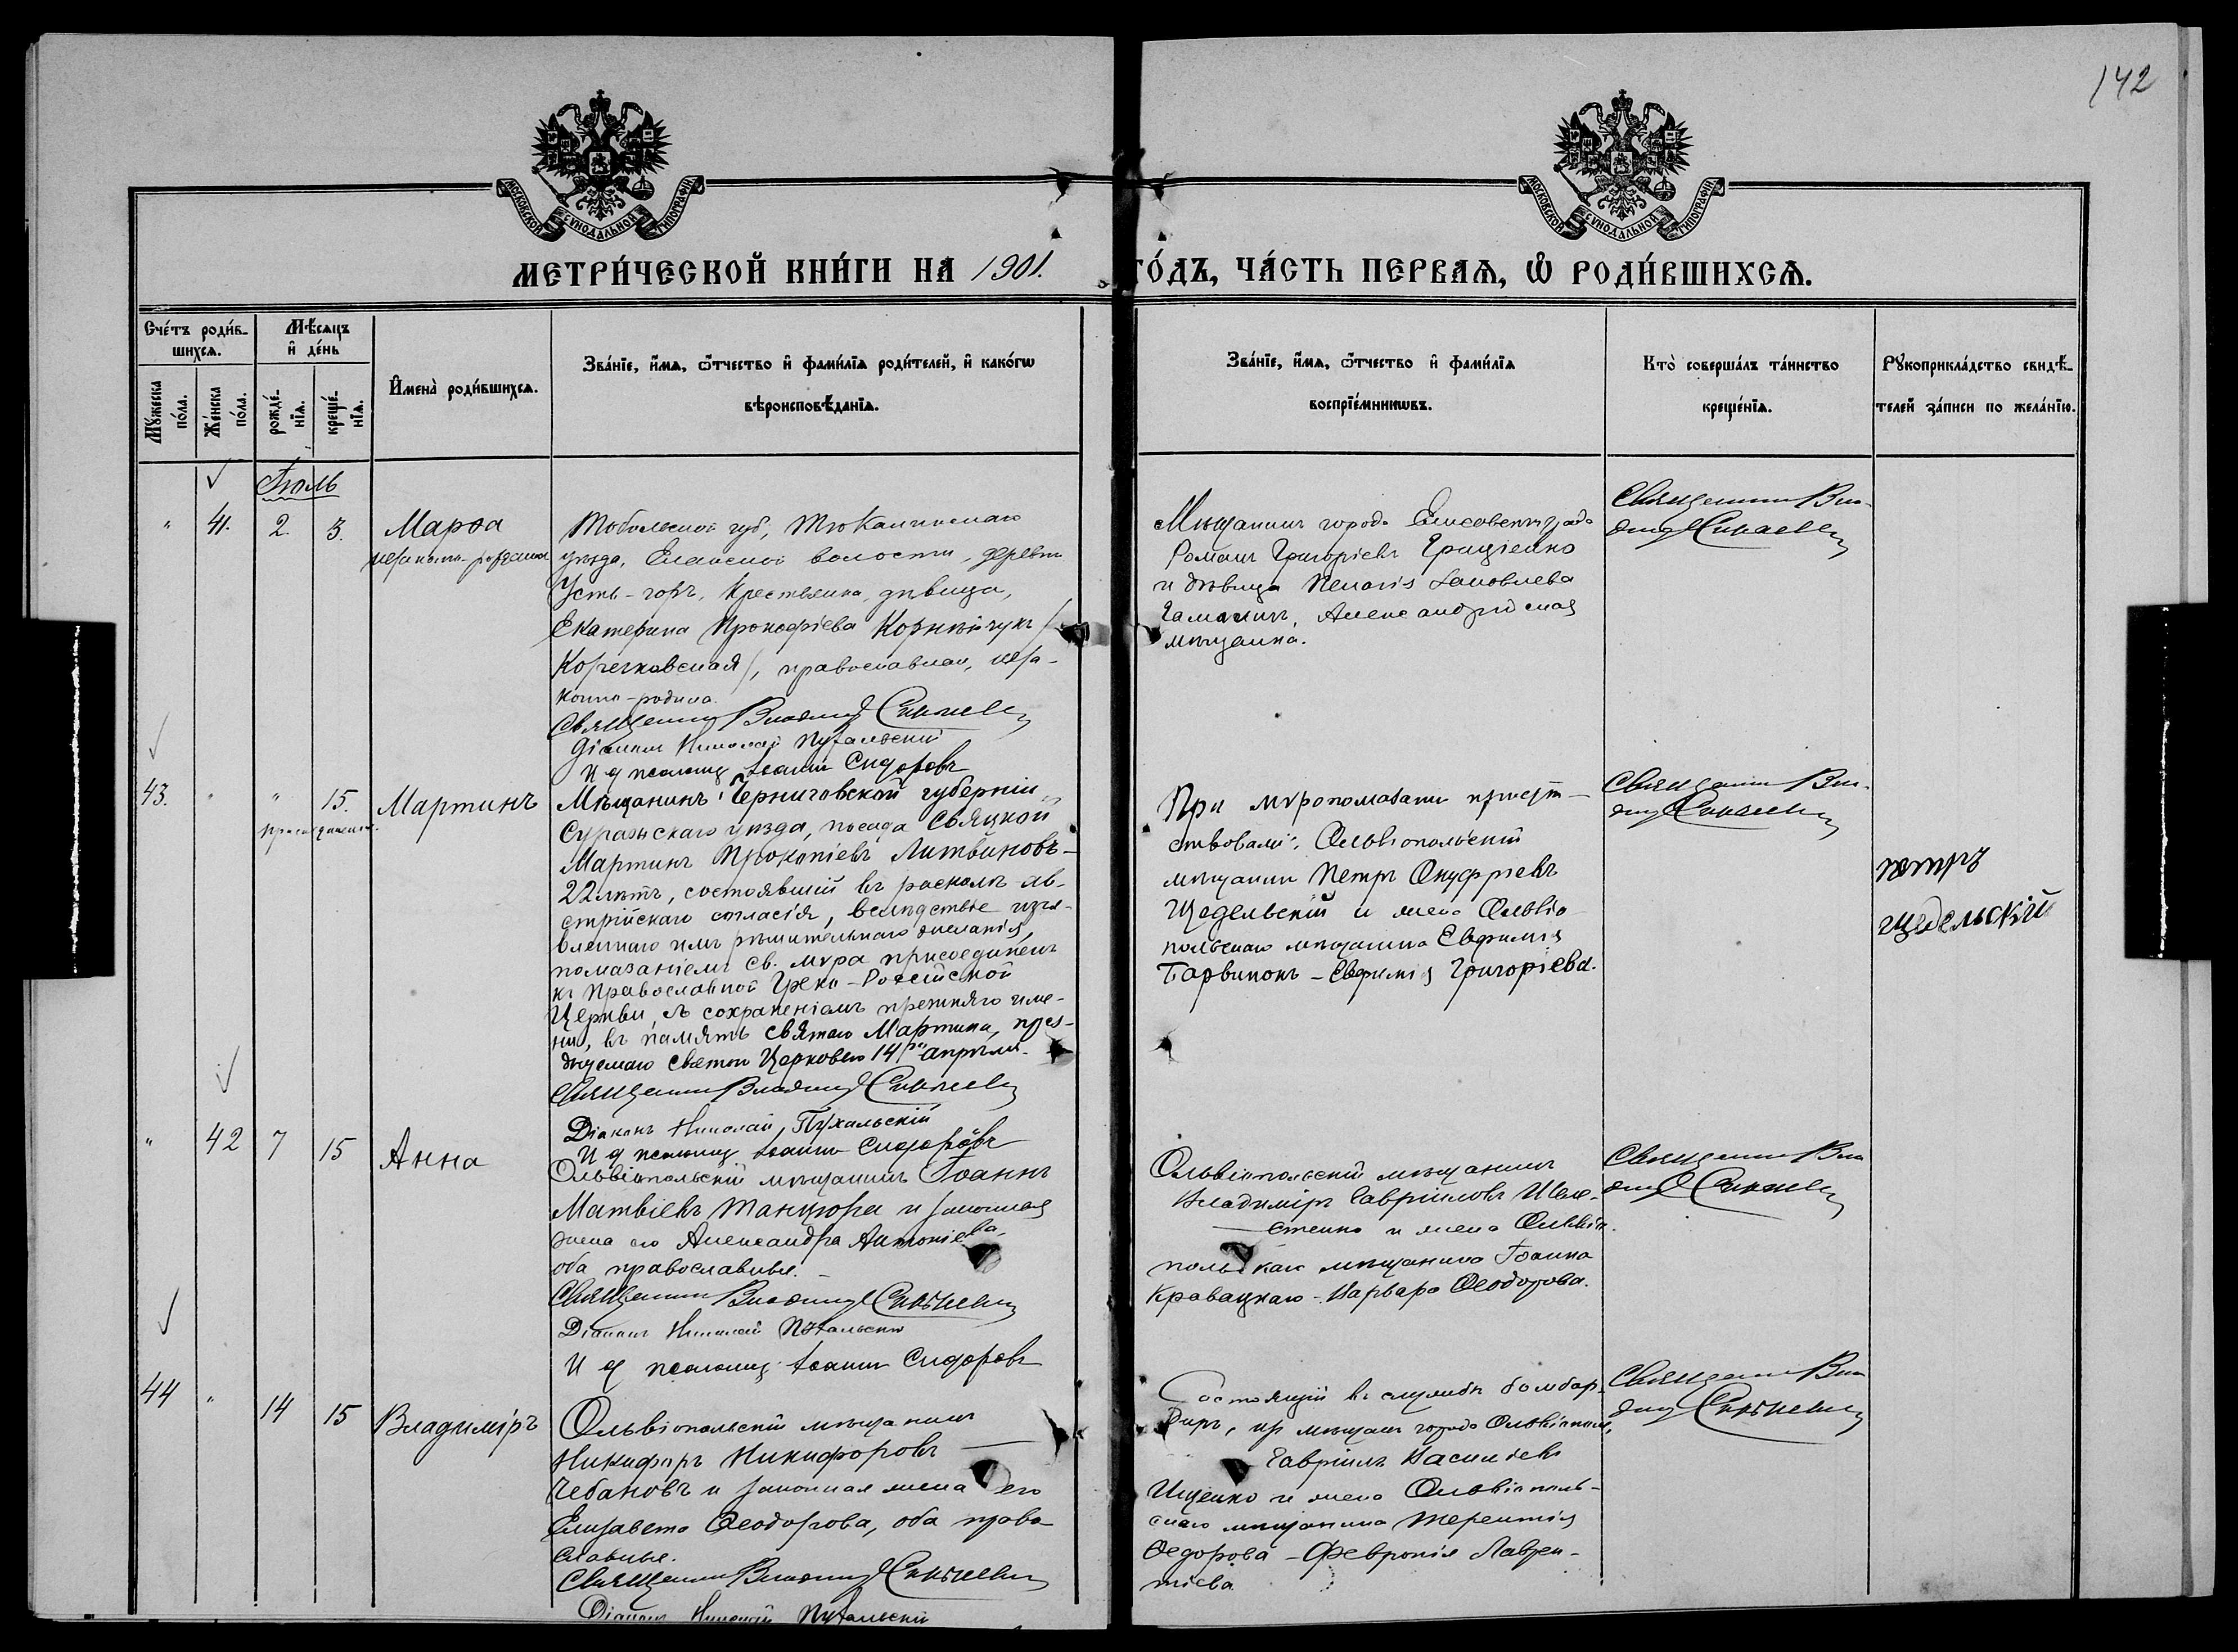 142
МОСКОВСКОЙ СѴНОДАЛЬНОЙ ТИПОГРАФІИ
МОСКОВСКОЙ СѴНОДАЛЬНОЙ ТИПОГРАФІИ
МЕТРИ́ЧЕСКОЙ КНИ́ГИ НА 1901. ГО́ДЪ, ЧА́СТЬ ПЕРВАѦ, Ѡ҆ РОДИ́ВШИХСѦ.
Сче́тъ роди́в-
шихсѧ.
Мꙋ́жеска
по́ла.
Же́нска
по́ла.
Мѣ́сѧцъ
и҆ де́нь
рожде́-
нїѧ.
креще́-
нїѧ.
И҆мена̀ роди́вшихсѧ.
Зва́нїе, и҆́мѧ, ѻ҆́тчество и҆ фами́лїѧ роди́телей, и҆ како́гѡ
вѣроисповѣ́данїѧ.
Зва́нїе, и҆́мѧ, ѻ҆́тчество и҆ фами́лїѧ
воспрїе́мникѡвъ.
Кто̀ соверша́лъ та́инство
креще́нїѧ.
Рꙋкоприкла́дство свидѣ́-
телей за́писи по жела́нїю.
Іюль
" 41. 2. 3.
Марѳа
незаконно-рожденная
Тобольской губ, Тюкалинскаго
уѣзда, Еланской волости, деревни
Усть-горъ, крестьянка, дѣвица,
Екатерина Прокофіева Корнѣйчукъ /
Коречковская/, православная, неза-
конно-родила.
Священникъ Владимир
Діаконъ Николай Пухальскій
И д псаломщ Іоаннъ Сидоровъ
Мѣщанинъ города Елисаветграда
Романъ Григорьевъ Гриценко
и дѣвица Пелагія Іаковлева
Александрійская
мѣщанка.
Священникъ Вла-
дим
43. " " 15.
присоединенъ.
Мартинъ
Мѣщанинъ Черниговской губерніи
Суражскаго уѣзда, посада Свяцкой
Мартинъ Прокопіевъ Литвиновъ-
22 лѣтъ, состоявшій въ расколѣ ав-
стрійскаго согласія, вслѣдствіе изъя-
вленнаго имъ рѣшительнаго желанія,
помазаніемъ св. мѵра присоединенъ
къ Православной Греко-Россійской
Церкви, съ сохраненіемъ прежняго име-
ни, въ память святаго Мартина, празд-
нуемаго святою Церковью 14го апрѣля.
Священникъ Владимир
Діаконъ Николай Пухальскій
И д псаломщ Іоаннъ Сидоровъ
При мѵропомазаніи присут-
ствовали: Ольвіопольскій
мѣщанинъ Петръ Онуфріевъ
Щедельскій и жена Ольвіо-
польскаго мѣщанина Евфимія
Барвинокъ - Евфимія Григоріева.
Священникъ Вла-
дим
Петръ
Щедельскій
" 42 7 15
Анна
Ольвіопольскій мѣщанинъ Іоаннъ
Матвіевъ Танцюра и законная
жена его Александра Антоніева-
оба православные.
Священникъ Владимир
Діаконъ Николай Пухальскій
И д псаломщ Іоаннъ Сидоровъ
Ольвіопольскій мѣщанинъ
Владиміръ Гавріиловъ Шела-
стенко и жена Ольвіо-
польскаго мѣщанина Іоанна
Кравацкаго - Варвара Ѳеодорова.
Священникъ Вла
дим
44 " 14 15
Владиміръ
Ольвіопольскій мѣщанинъ
Никифоръ Никифоровъ
Чебановъ и законная жена его
Елизавета Ѳеодорова, оба право-
славные.
Священникъ Владимир
Діаконъ Николай Пухальскій
Состоящій въ службѣ бомбар-
диръ, изъ мѣщанъ города Ольвіополя,
Гавріилъ Василіевъ
Ищенко и жена Ольвіополь-
скаго мѣщанина Терентія
Ѳедорова - Февронія Лаврен-
тіева.
Священникъ Вла
дим